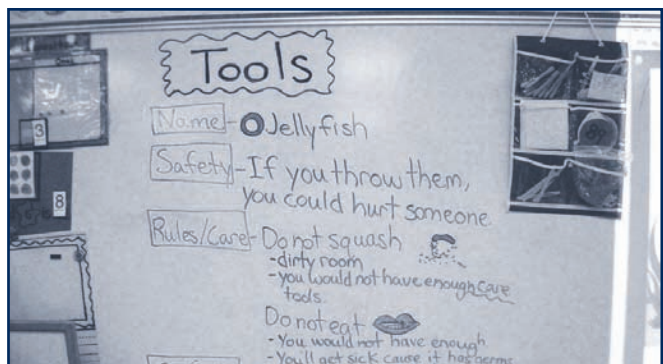 Tools
Name - Jellyfish
Safety - If you throw them,
you could hurt someone.
Rules/Care - Do not squash
- dirty room
- you would not have enough care
tools.
Do not eat
- You would not have enough
- You'll get sick cause it has germs
3
8